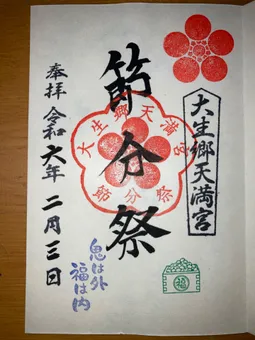 大生郷天満宮
節分祭
大生郷天満宮
節分祭
奉拝 令和六年二月三日
鬼は外
福は内
福